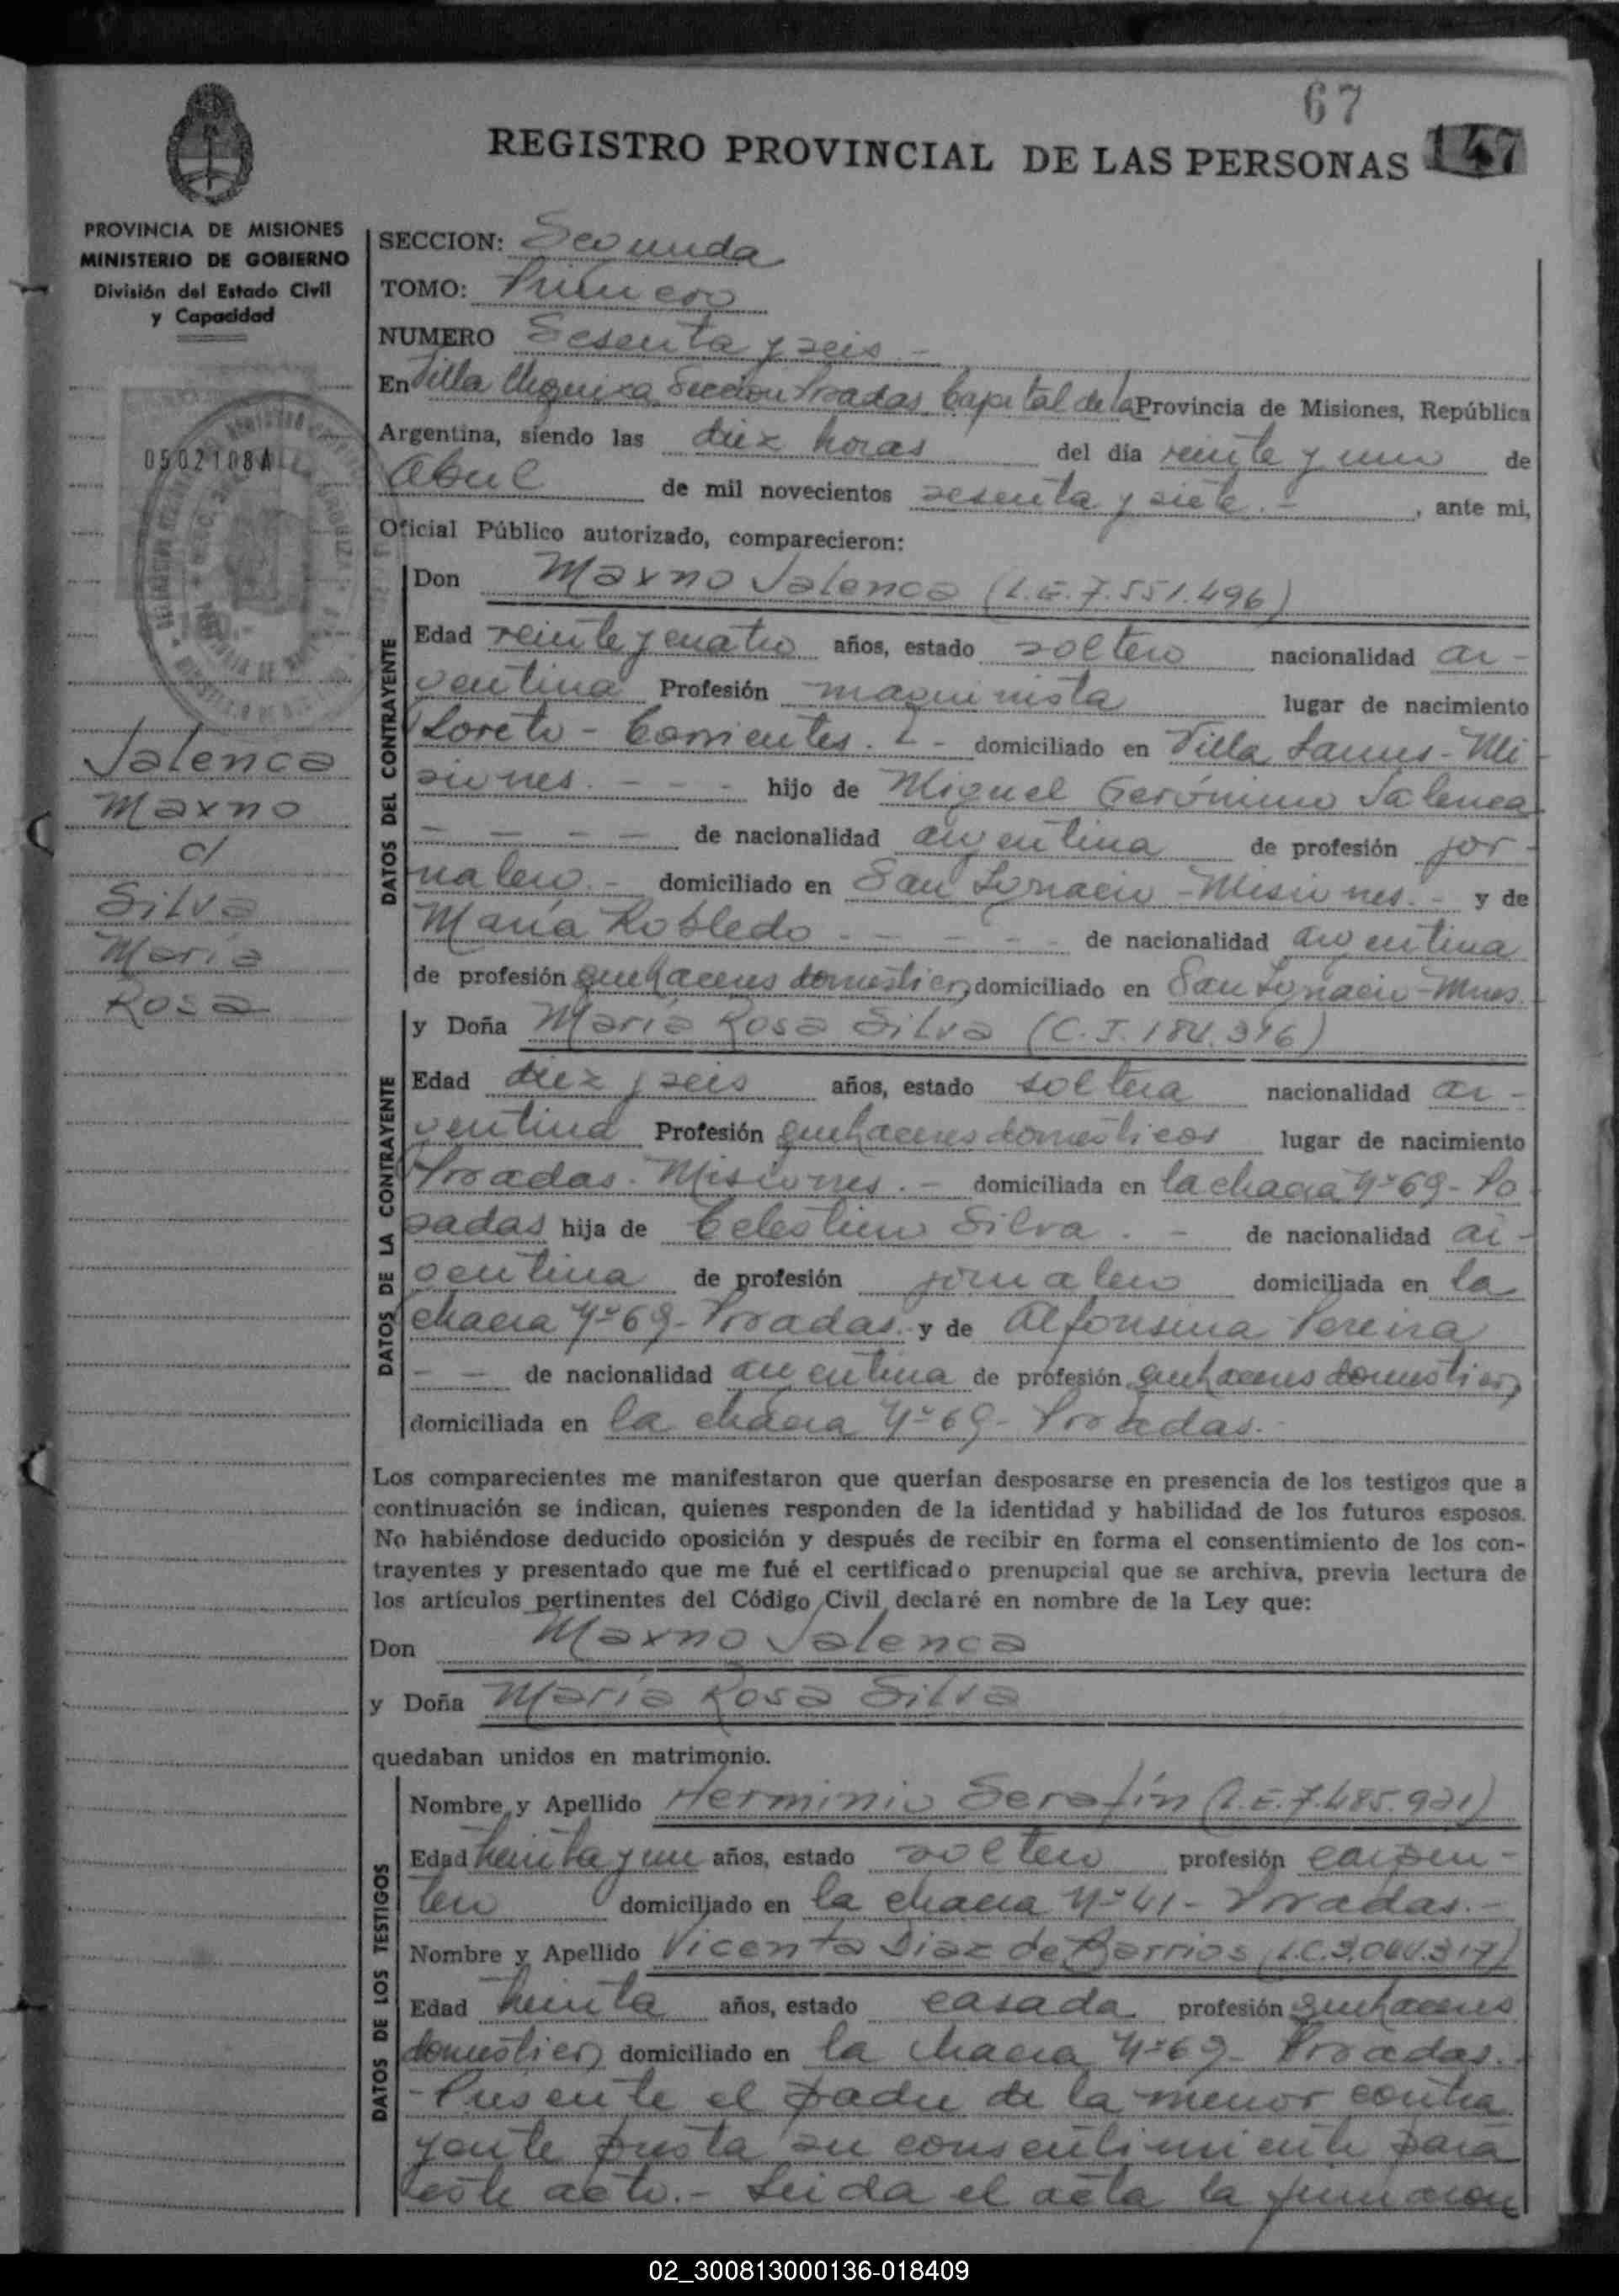 67
REGISTRO PROVINCIAL DE LAS PERSONAS 147
PROVINCIA DE MISIONES
MINISTERIO DE GOBIERNO
División del Estado Civil
y Capacidad
0502108A
Valenca
Maxno
c/
Silva
María
Rosa
SECCION: Segunda
TOMO: Primero
NUMERO Sesenta y seis.-
En Villa Sección Posadas Capital de la Provincia de Misiones, República
Argentina, siendo las diez horas del día veinte y uno de
Abril de mil novecientos sesenta y siete.-, ante mi,
Oficial Público autorizado, comparecieron:
DATOS DEL CONTRAYENTE
Don Maxno Valenca (L.E.7.551.496)
Edad veinte y cuatro años, estado soltero nacionalidad ar-
gentina Profesión maquinista lugar de nacimiento
Loreto - Corrientes.- domiciliado en Villa Lanus - Mi
siones. - - - hijo de Miguel Gerónimo Valenca
- - - - de nacionalidad argentina de profesión jor-
nalero.- domiciliado en San Ignacio - Misiones.- y de
María Robledo - - - - de nacionalidad argentina
de profesión quehaceres domésticos domiciliado en San Ignacio - Mnes.
DATOS DE LA CONTRAYENTE
y Doña María Rosa Silva (C.I. 184.316)
Edad diez y seis años, estado soltera nacionalidad ar-
gentina Profesión quehaceres domésticos lugar de nacimiento
Posadas - Misiones.- domiciliada en la chacra Nº 69 - Po
sadas hija de Celestino Silva. - de nacionalidad ar-
gentina de profesión jornalero domiciliada en la
chacra Nº 69 - Posadas.- y de Alfonsina Pereira
- - de nacionalidad argentina de profesión quehaceres domésticos
domiciliada en la chacra Nº 69 - Posadas.-
Los comparecientes me manifestaron que querían desposarse en presencia de los testigos que a
continuación se indican, quienes responden de la identidad y habilidad de los futuros esposos.
No habiéndose deducido oposición y después de recibir en forma el consentimiento de los con-
trayentes y presentado que me fué el certificado prenupcial que se archiva, previa lectura de
los artículos pertinentes del Código Civil declaré en nombre de la Ley que:
Don Maxno Valenca
y Doña María Rosa Silva
quedaban unidos en matrimonio.
DATOS DE LOS TESTIGOS
Nombre y Apellido Herminio Serafín (L.E.7.485.921)
Edad treinta y un años, estado soltero profesión carpin-
tero domiciliado en la chacra Nº 41 - Posadas.-
Nombre y Apellido Vicenta Diaz de Barrios (L.C.9.044.317)
Edad treinta años, estado casada profesión quehaceres
domésticos domiciliado en la chacra Nº 69 - Posadas.-
- Presente el padre de la menor contra
yente presta su consentimiento para
este acto.- Leída el acta la firmaron
02_300813000136-018409